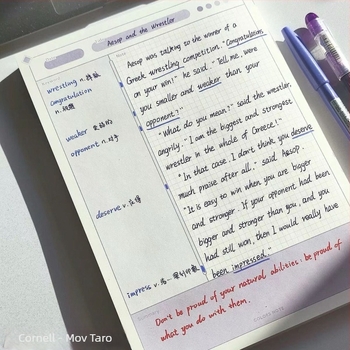 Aesop and the Wrestler
wrestling n.摔跤
congratulation
n.祝贺
weaker
opponent n.对手
deserve v.
impress v.
Aesop was talking to the winner of a
Greek wrestling competition. "Congratulations
on your win!" he said. "Tell me, were
you smaller and weaker than your
opponent?"
"What do you mean?" said the wrestler,
angrily. "I am the biggest and strongest
wrestler in the whole of Greece!"
"In that case, I don't think you deserve
much praise after all." said Aesop.
"It is easy to win when you are bigger
and stronger. If your opponent had been
bigger and stronger than you, and you
had still won, then I would really have
been impressed."
Don't be proud of your natural abilities: be proud of
what you do with them.
Cornell - Mov Taro